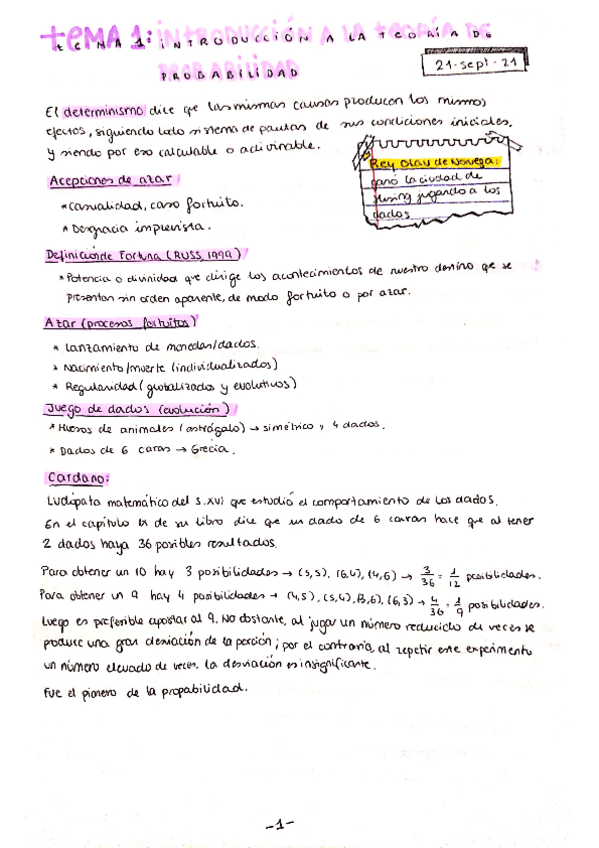 tema 1: introducción a la teoría de
probabilidad
21-sept-21
El determinismo dice que las mismas causas producen los mismos
efectos, siguiendo todo sistema de pautas de sus condiciones iniciales,
y siendo por eso calculable o adivinable.
Rey Olav de Noruega:
ganó la ciudad de
Hising jugando a los
dados
Acepciones de azar
*Casualidad, caso fortuito.
* Desgracia imprevista.
Definición de Fortuna (RUSS, 1999)
*Potencia o divinidad que dirige los acontecimientos de nuestro destino que se
presentan sin orden aparente, de modo fortuito o por azar.
Azar (procesos fortuitos)
* Lanzamiento de monedas/dados.
* Nacimiento/muerte (individualizados)
* Regularidad (globalizados y evolutivos)
Juego de dados (evolución)
* Huesos de animales (astrágalo) → simétrico y 4 dados.
* Dados de 6 caras → Grecia.
Cardano:
Ludópata matemático del s.XVI que estudió el comportamiento de los dados.
En el capítulo IX de su libro dice que un dado de 6 caras hace que al tener
2 dados haya 36 posibles resultados.
Para obtener un 10 hay 3 posibilidades → (5,5), (6,4), (4,6) → 3/36 = 1/12 posibilidades.
Para obtener un 9 hay 4 posibilidades → (4,5), (5,4), (3,6), (6,3) → 4/36 = 1/9 posibilidades.
Luego es preferible apostar al 9. No obstante, al jugar un número reducido de veces se
produce una gran desviación de la porción; por el contrario, al repetir este experimento
un número elevado de veces, la desviación es insignificante.
Fue el pionero de la propabilidad.
-1-